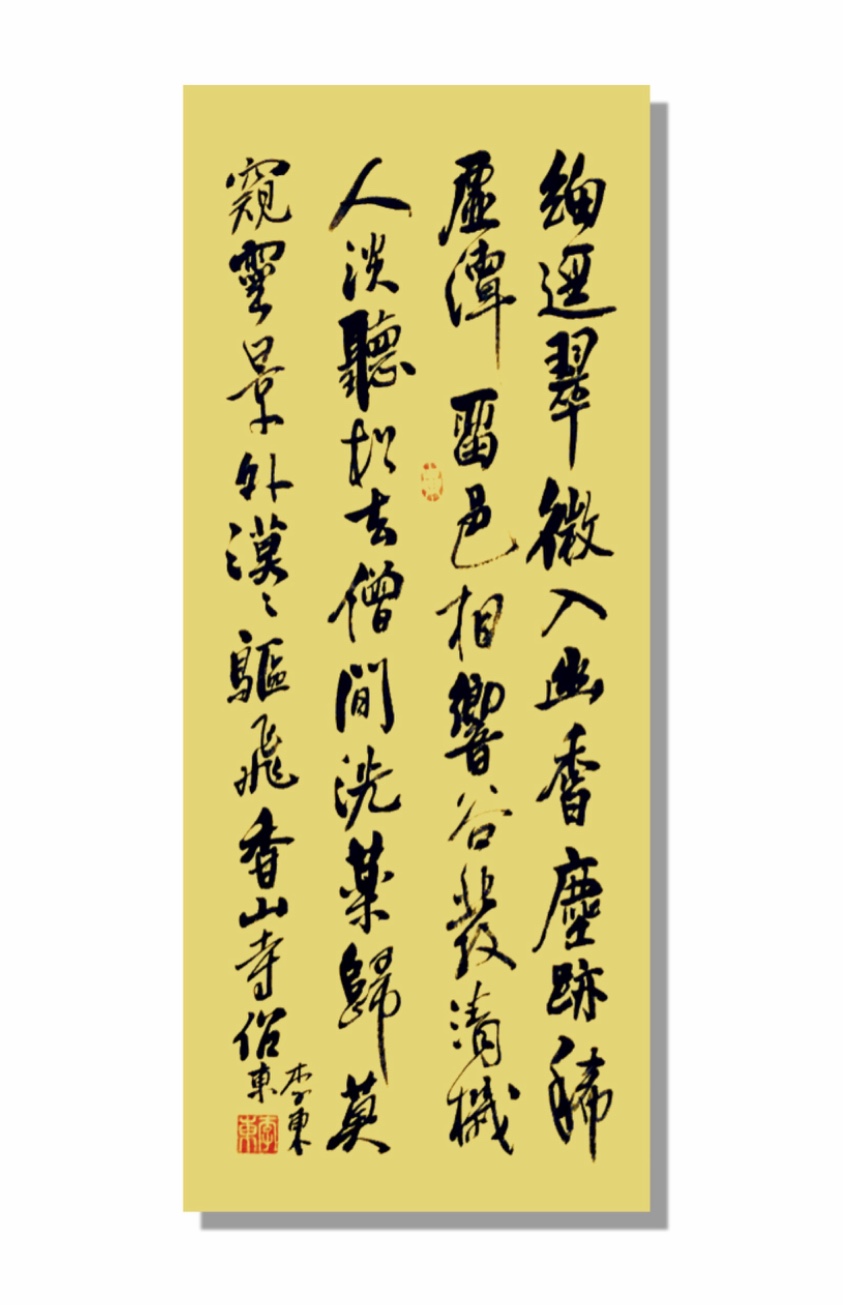 細逕翠微入幽香塵跡稀
虛潭畱色相響谷發清機
人淡聽松去僧閒洗藥歸莫
窺雲景外漠々驅飛香山寺俗
李東
東
李東